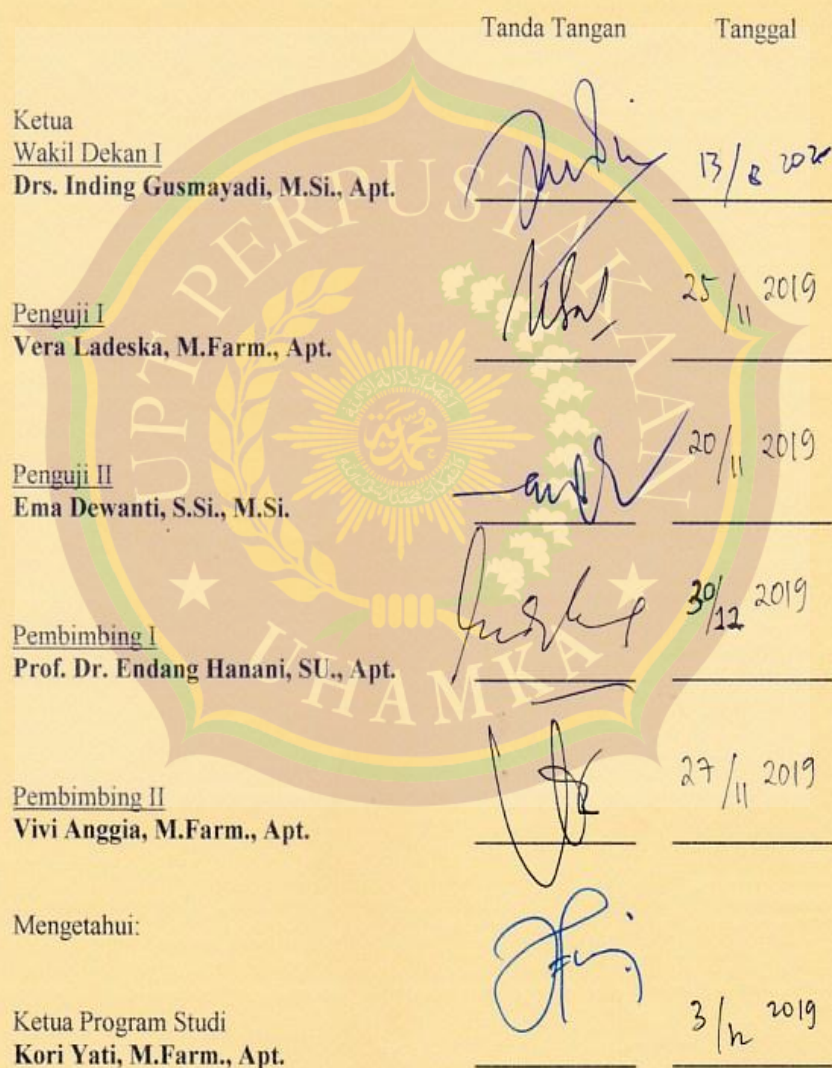 Tanda Tangan Tanggal
Ketua
Wakil Dekan I
Drs. Inding Gusmayadi, M.Si., Apt. 13/8 2020
Penguji I
Vera Ladeska, M.Farm., Apt. 25/11 2019
Penguji II
Ema Dewanti, S.Si., M.Si. 20/11 2019
Pembimbing I
Prof. Dr. Endang Hanani, SU., Apt. 30/12 2019
Pembimbing II
Vivi Anggia, M.Farm., Apt. 27/11 2019
Mengetahui:
Ketua Program Studi
Kori Yati, M.Farm., Apt. 3/12 2019
UPT PERPUSTAKAAN
UHAMKA